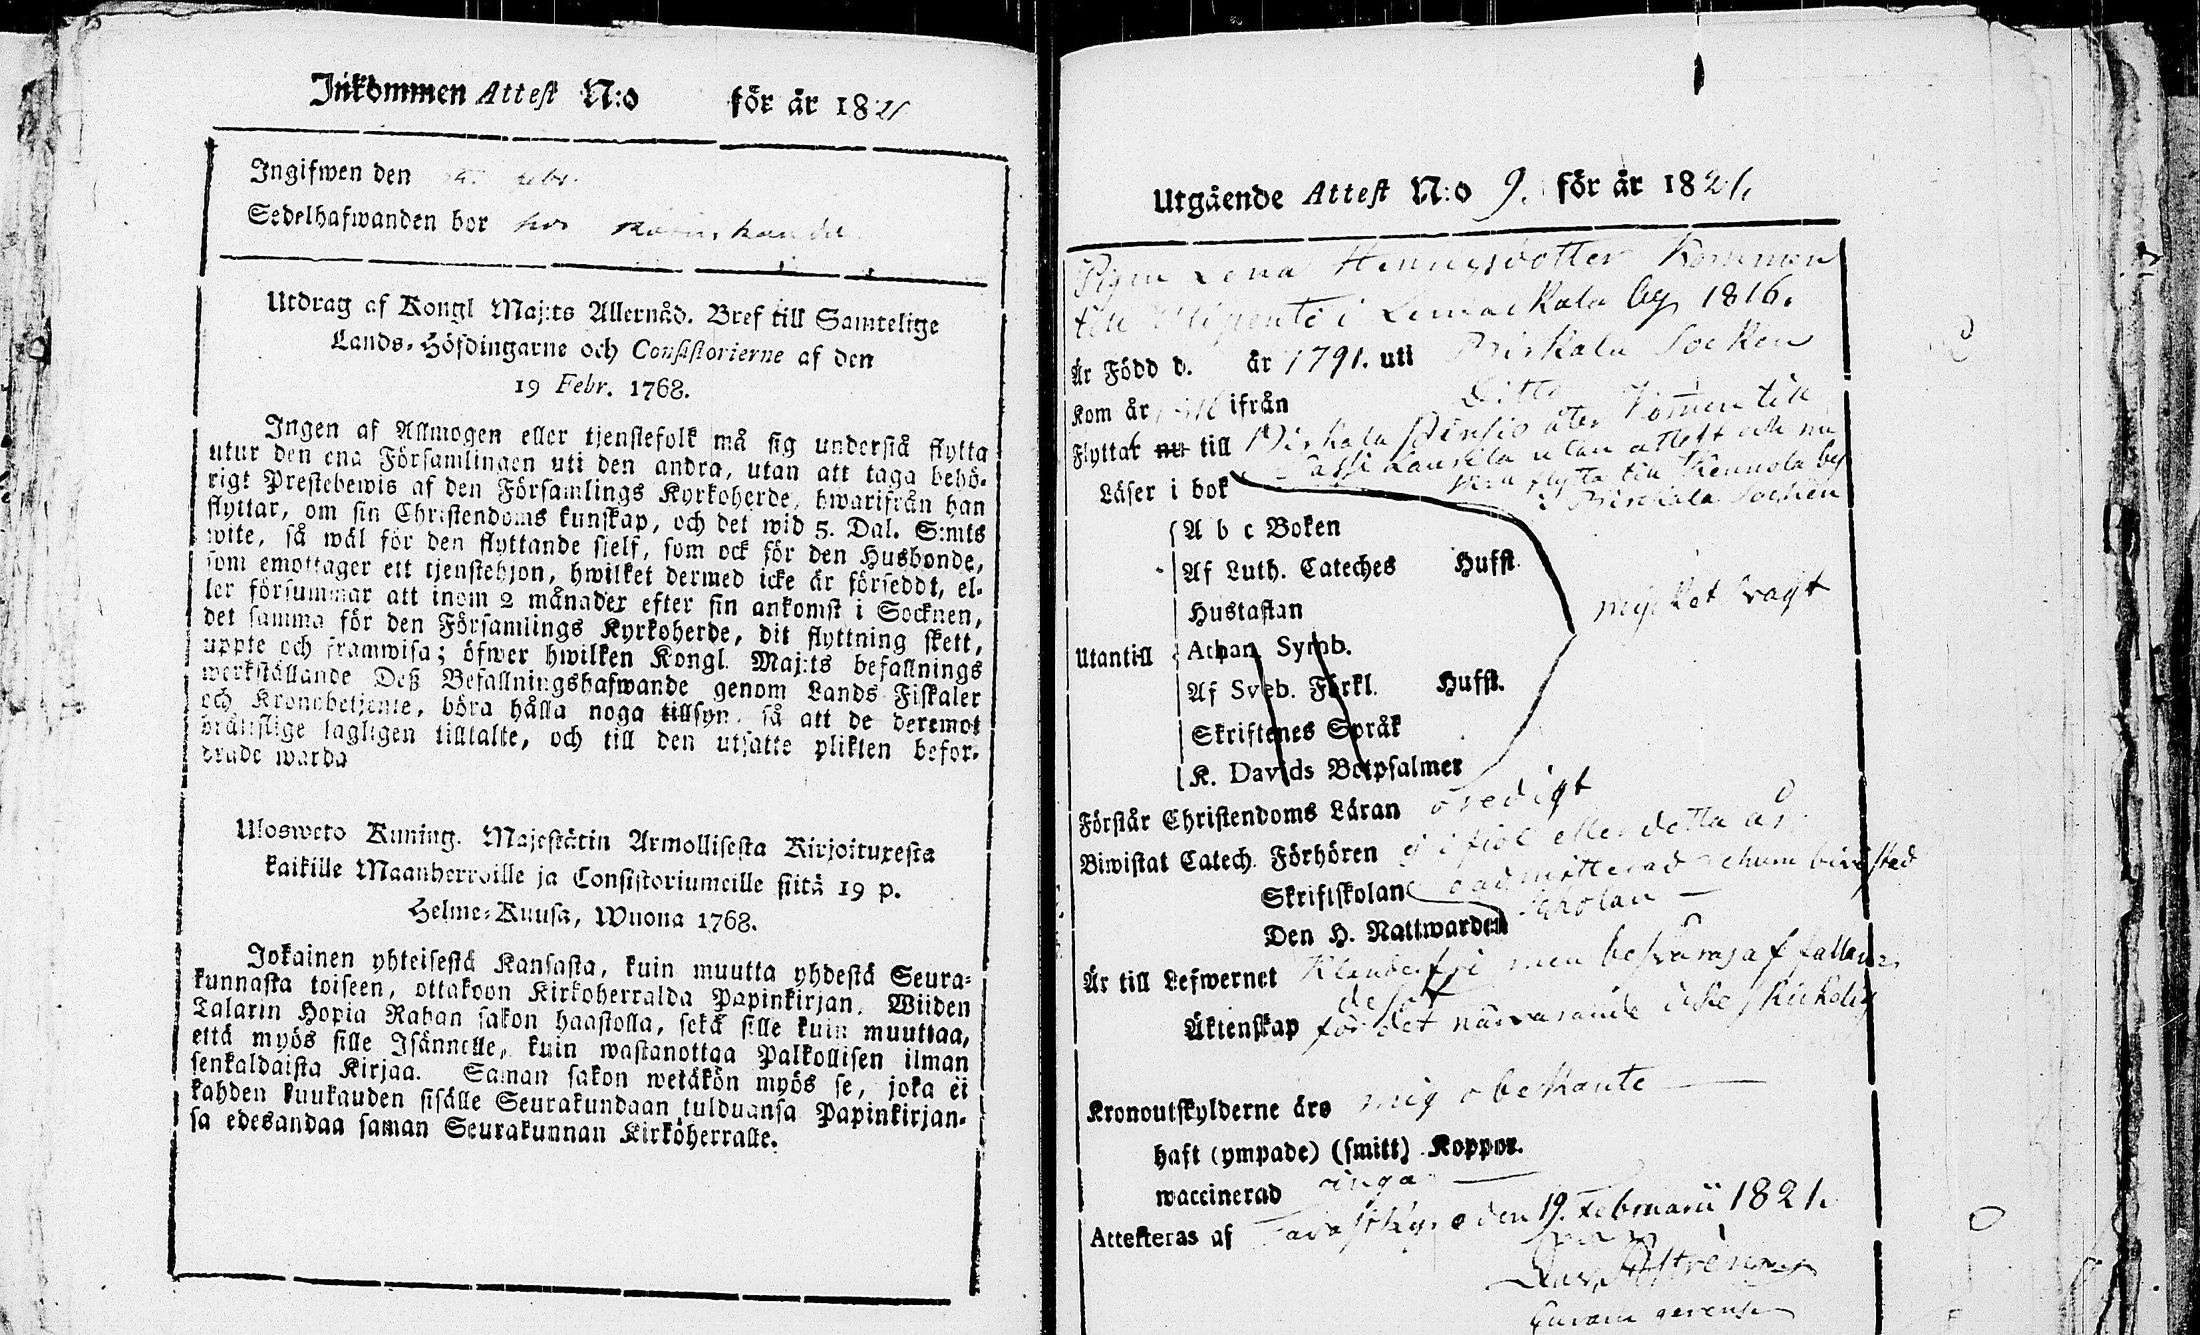 Inkommen Attest N:o för år 1821
Ingifwen den febr.
Sedelhafwanden bor hos
Utdrag af Kongl Maj:ts Allernåd. Bref till Samtelige
Lands-Höfdingarne och Consistorierne af den
19 Febr. 1768.
Ingen af Allmogen eller tjenstefolk må sig understå flytta
utur den ena Församlingen uti den andra, utan att taga behö-
rigt Prestebewis af den Församlings Kyrkoherde, hwarifrån han
flyttar, om sin Christendoms kunskap, och det wid 5. Dal. S:mts
wite, så wäl för den flyttande sjelf, som ock för den Husbonde,
som emottager ett tjenstehjon, hwilket dermed icke är försedt, el-
ler försummar att inom 2 månader efter sin ankomst i Socknen,
det samma för den Församlings Kyrkoherde, dit flyttning skett,
uppte och framwisa; öfwer hwilken Kongl. Maj:ts befallnings
werkställande Deß Befallningshafwande genom Lands Fiskaler
och Kronobetjente, böra hålla noga tillsyn, så att de deremot
brättslige lagligen tilltalte, och till den utsatte plikten befor-
drade warda
Ulosweto Kuning. Majestätin Armollisesta Kirjoituxesta
kaikille Maanherroille ja Consistoriumeille siitä 19 p.
Helme-Kuusa, Wuona 1768.
Jokainen yhteisestä Kansasta, kuin muutta yhdestä Seura-
kunnasta toiseen, ottakoon Kirkoherralda Papinkirjan, Wiiden
Talarin Hopia Rahan sakon haastolla, sekä sille kuin muuttaa,
että myös sille Isännelle, kuin wastanottaa Palkollisen ilman
senkaldaista Kirjaa. Saman sakon wetäkön myös se, joka ei
kahden kuukauden sisälle Seurakundaan tulduansa Papinkirjan-
sa edesandaa saman Seurakunnan Kirköherralle.
Utgående Attest N:o 9. för år 1821.
Pigan Lena Henricsdotter Kommen
till i by 1816.
Är Född d. år 1791. uti Birkala Socken
Kom år 1816 ifrån Ditto
Flyttat nu till Birkala åter Kommen till
utan attest och nu
Läser i bok flytta till Kennola by
i Birkala Socken
A b c Boken
Af Luth. Cateches Hufst.
Hustaflan
mycket swagt
Utantill Athan. Symb.
Af Sveb. Förkl. Hufst.
Skriftenes Språk
K. Davids Botpsalmer
Förstår Christendoms Läran oredigt
Biwistat Catech. Förhören ej i fjol eller detta år
Skriftskolan oadmitterad ehuru bivistad
Den H. Nattwarden Skolan
Är till Lefwernet Klanderfri men besväras af fallande
sot
Äktenskap för det närvarande icke skickelig
Kronoutskylderne äro mig obekante
haft (ympade) (smitt) Koppor.
waccinerad inga
Attesteras af Tavastkyro den 19. Februarii 1821.